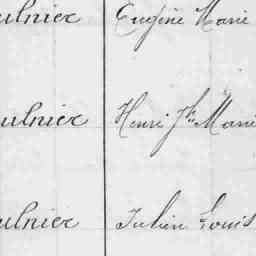 ulnier Eugène Marie
ulnier Henri Jh Marie
ulnier Julien Louis